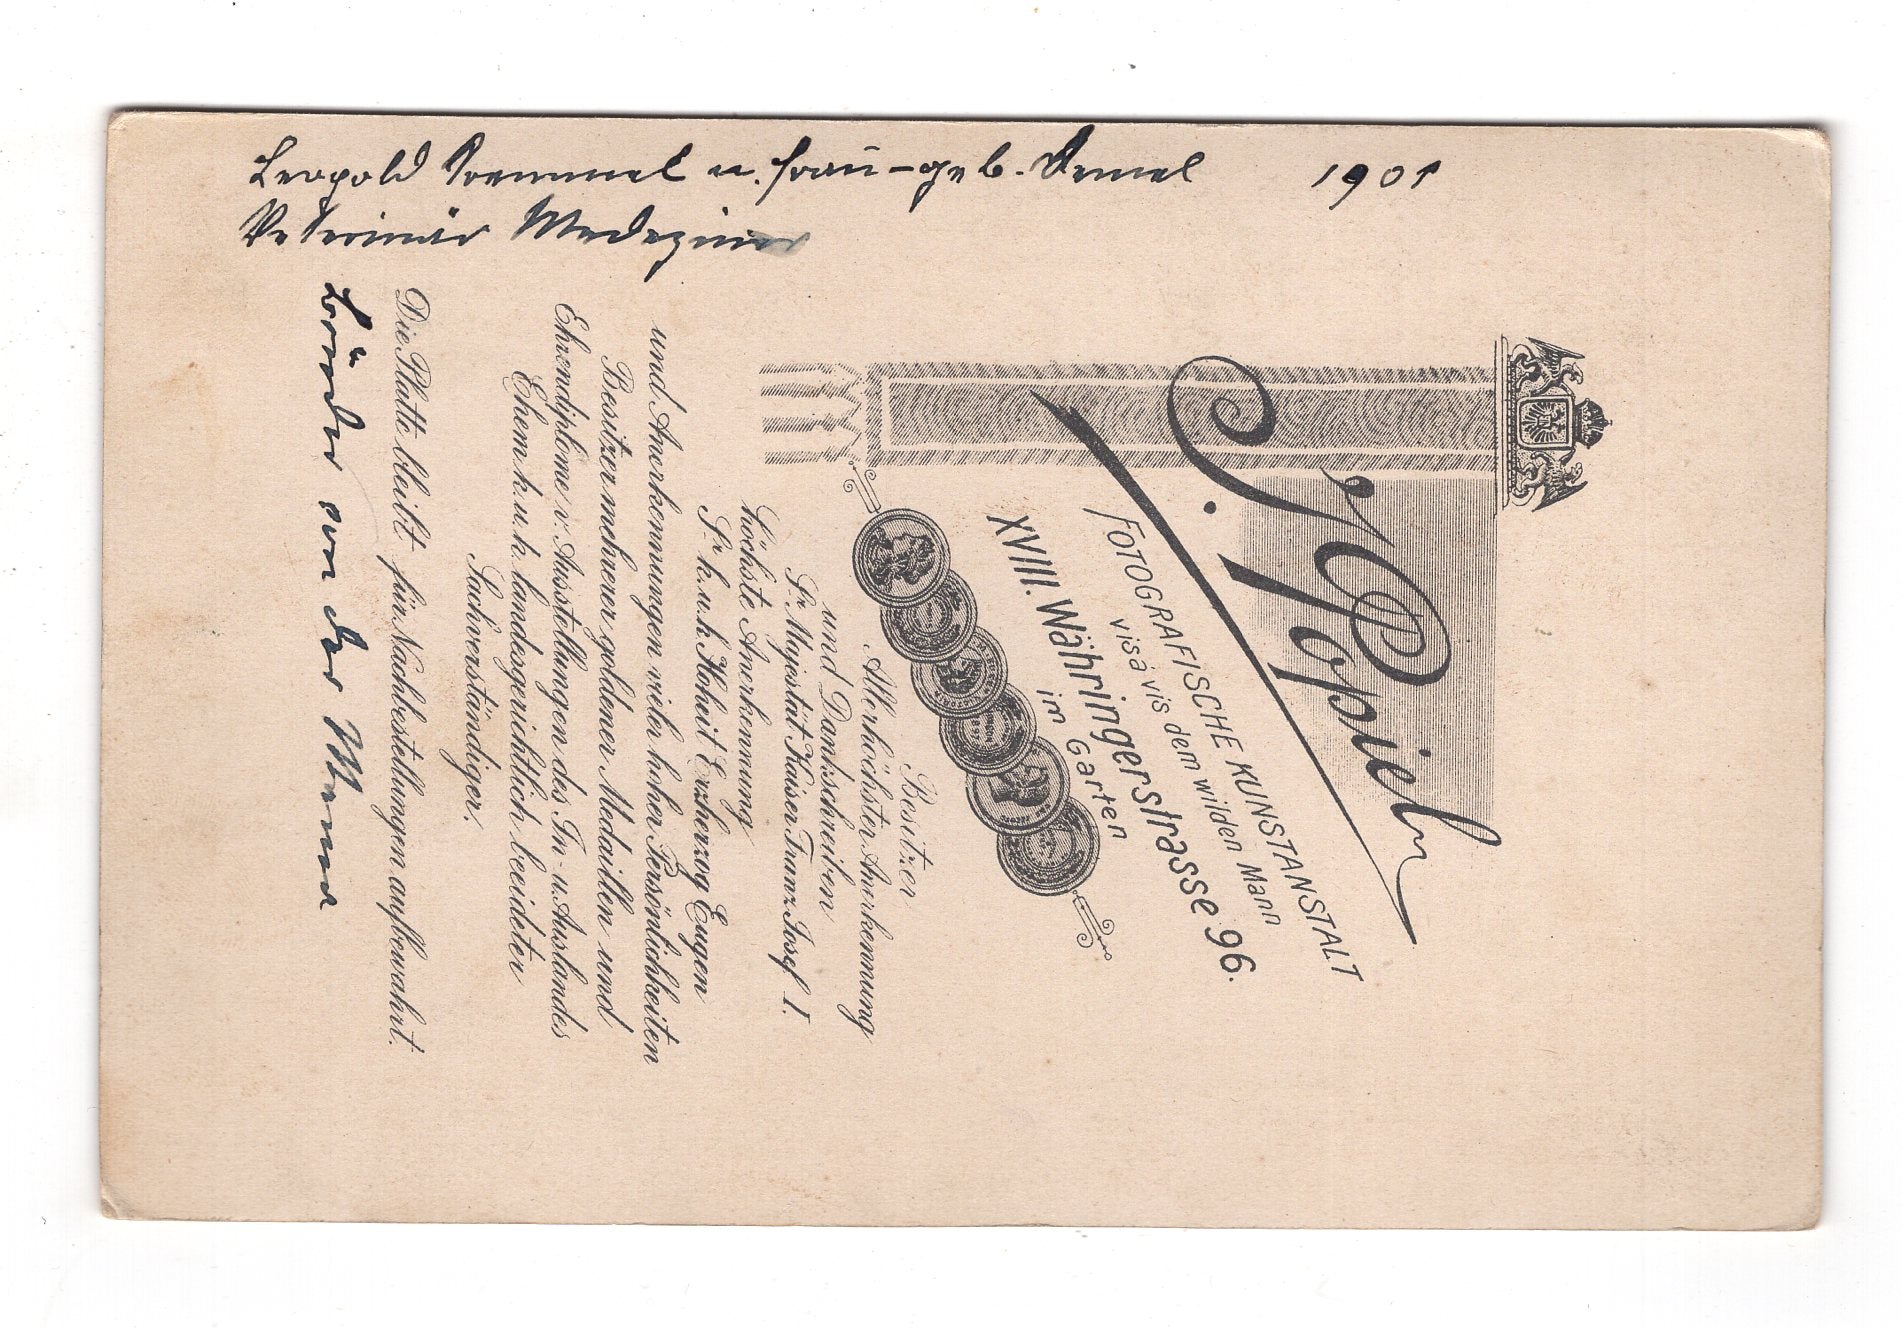 Leopold u. Frau-geb. Demel 1901
Veterinär Medeziner
Brüder von der Mama
J. Popiel
FOTOGRAFISCHE KUNSTANSTALT
visà vis dem wilden Mann
XVIII. Währingerstrasse 96.
im Garten
Besitzer
Allerhöchster Anerkennung
und Dankschreiben
Sr. Majestät Kaiser Franz Josef I.
höchste Anerkennung
Sr. k. u. k. Hoheit Erzherzog Eugen
und Anerkennungen vieler hoher Persönlichkeiten
Besitzer mehrerer goldener Medaillen und
Ehrendiplome v. Ausstellungen des In- u. Auslandes
Ehem. k. u. k. landesgerichtlich beeideter
Sachverständiger.
Die Platte bleibt für Nachbestellungen aufbewahrt.